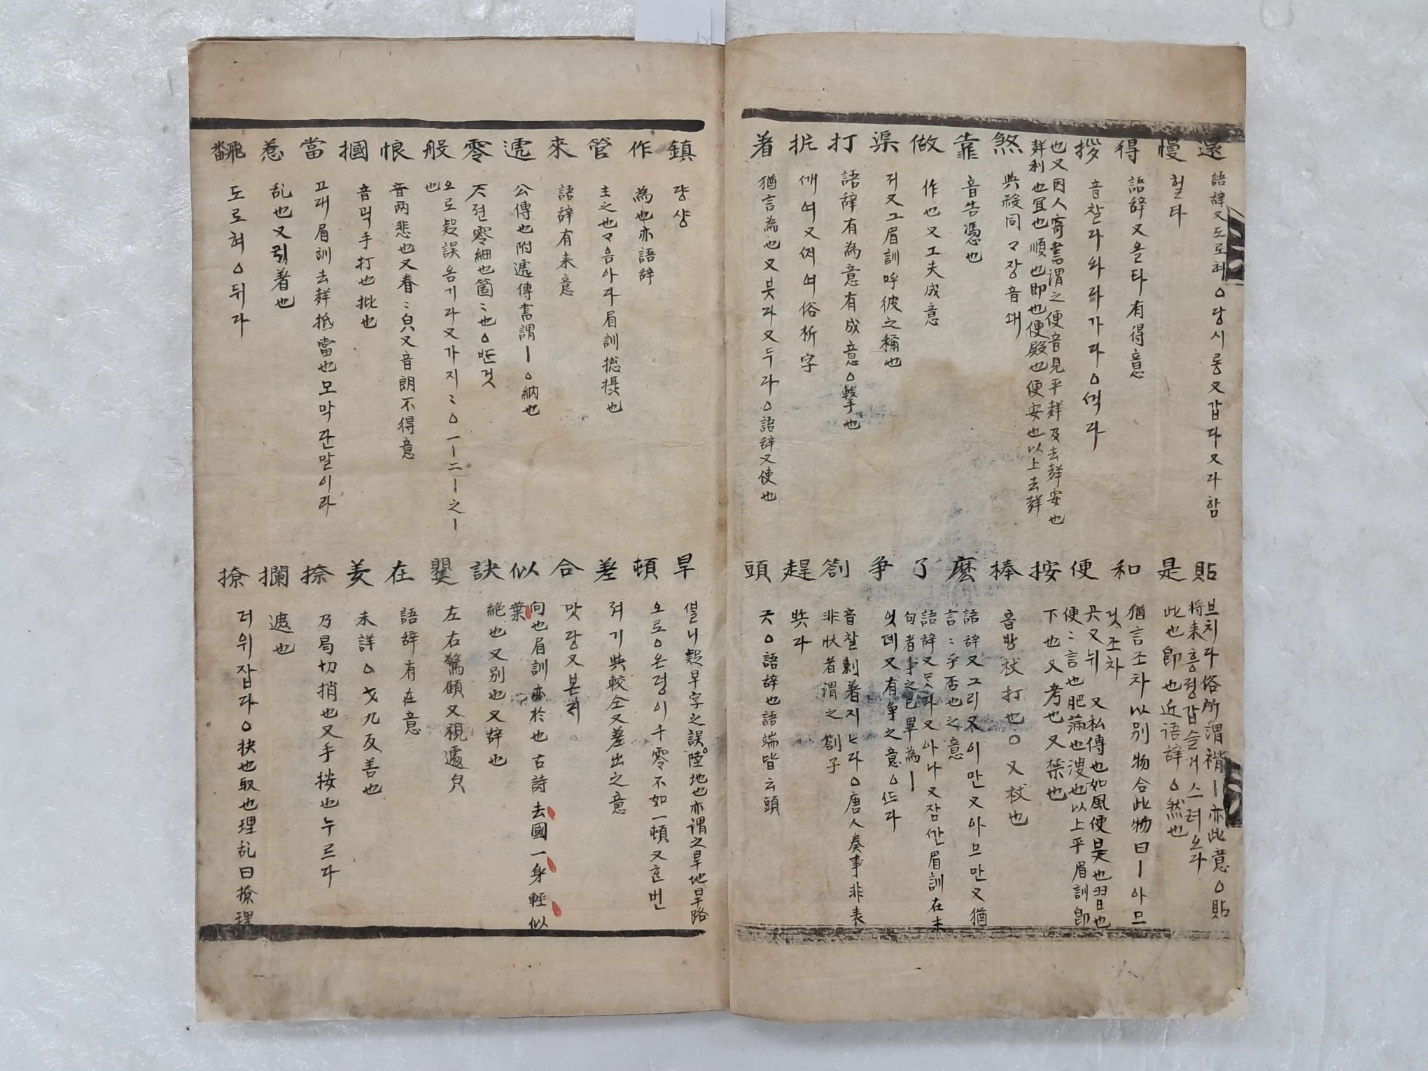 還 語辞又도로혀○당시롱又갑다又다함
慢 헐타
得 語辞又올타有得意
拶 音찰다와라가다○역다
也又因人寄書謂之便音見平聲及去聲安也
聲利也宜也順也即也便殿也便安也以上去聲
煞 與殺同又장音쇄
靠 音告憑也
做 作也又工夫成意
渠 저又그眉訓呼彼之稱也
打 語辞有為意有成意○擊也
拕 에여又여여俗析字
著 猶言為也又붓다又두다○語辞又使也
貼 브치다俗所謂褙丨亦此意○貼
将来흥졍갑슬거스려오다
是 此也即也近语辞○然也
和 猶言조차以別物合此物曰丨아므
것조차
便 곳又뉘 又私傳也如風便是也習也
便〻言也肥滿也溲也以上平眉訓即
按 下也又考也又禁也
棒 音방杖打也○又杖也
麽 語辞又그리又이만又아므만又猶
言〻乎否也之意
了 語辞又又아나又잠깐眉訓在末
句者事之已畢為丨
争 엇뎨又有争之意○드다
劄 音찰剌著지르다○唐人奏事非表
非狀者謂之劄子
趕 다
頭 긋○語辞也語端皆云頭
鎮 댱샹
作 為也亦語辞
管 主之也又음아다眉訓捴摂也
來 語辞有来意
遞 公傳也附遞傳書謂丨○納也
零 又젼零細也箇〻也○번것
般 오로疑誤옴기다又가지〻○一丨二丨之丨
也
恨 音两悲也又眷〻皃又音朗不得意
摑 音괵手打也批也
當 고대眉訓去聲抵當也又막단말이라
惹 乱也又引著也
飜 도로혀○뒤다
早 셜니疑旱字之誤陸地也亦谓之旱地旱路
頓 오로○온령이千零不如一頓又흔번
差 져기與較仝又差出之意
合 맛당又본
似 向也眉訓亦於也古詩去國一身輕似
葉
訣 絶也又別也又辞也
矍 左右驚顧又視遽皃
在 語辞有在意
姜 未詳○戈九反善也
捺 乃曷切捎也又手按也누르다
攔 遮也
撩 더위잡다○抉也取也理乱曰撩理